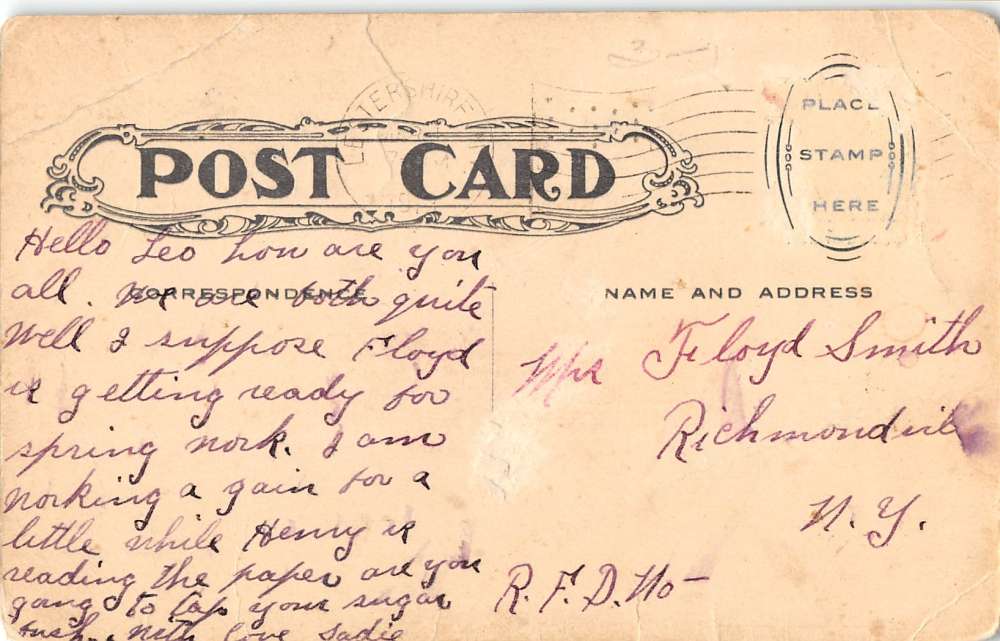 LESTERSHIRE
POST CARD
PLACE
STAMP
HERE
Hello Leo how are you
all. We are both quite
CORRESPONDENCE
well I suppose Floyd
is getting ready for
spring work. I am
working a gain for a
little while Henry is
reading the paper are you
gong to tap your sugar
bush. With love Sadie
NAME AND ADDRESS
Mrs Floyd Smith
Richmondvil
N. Y.
R. F. D. No-